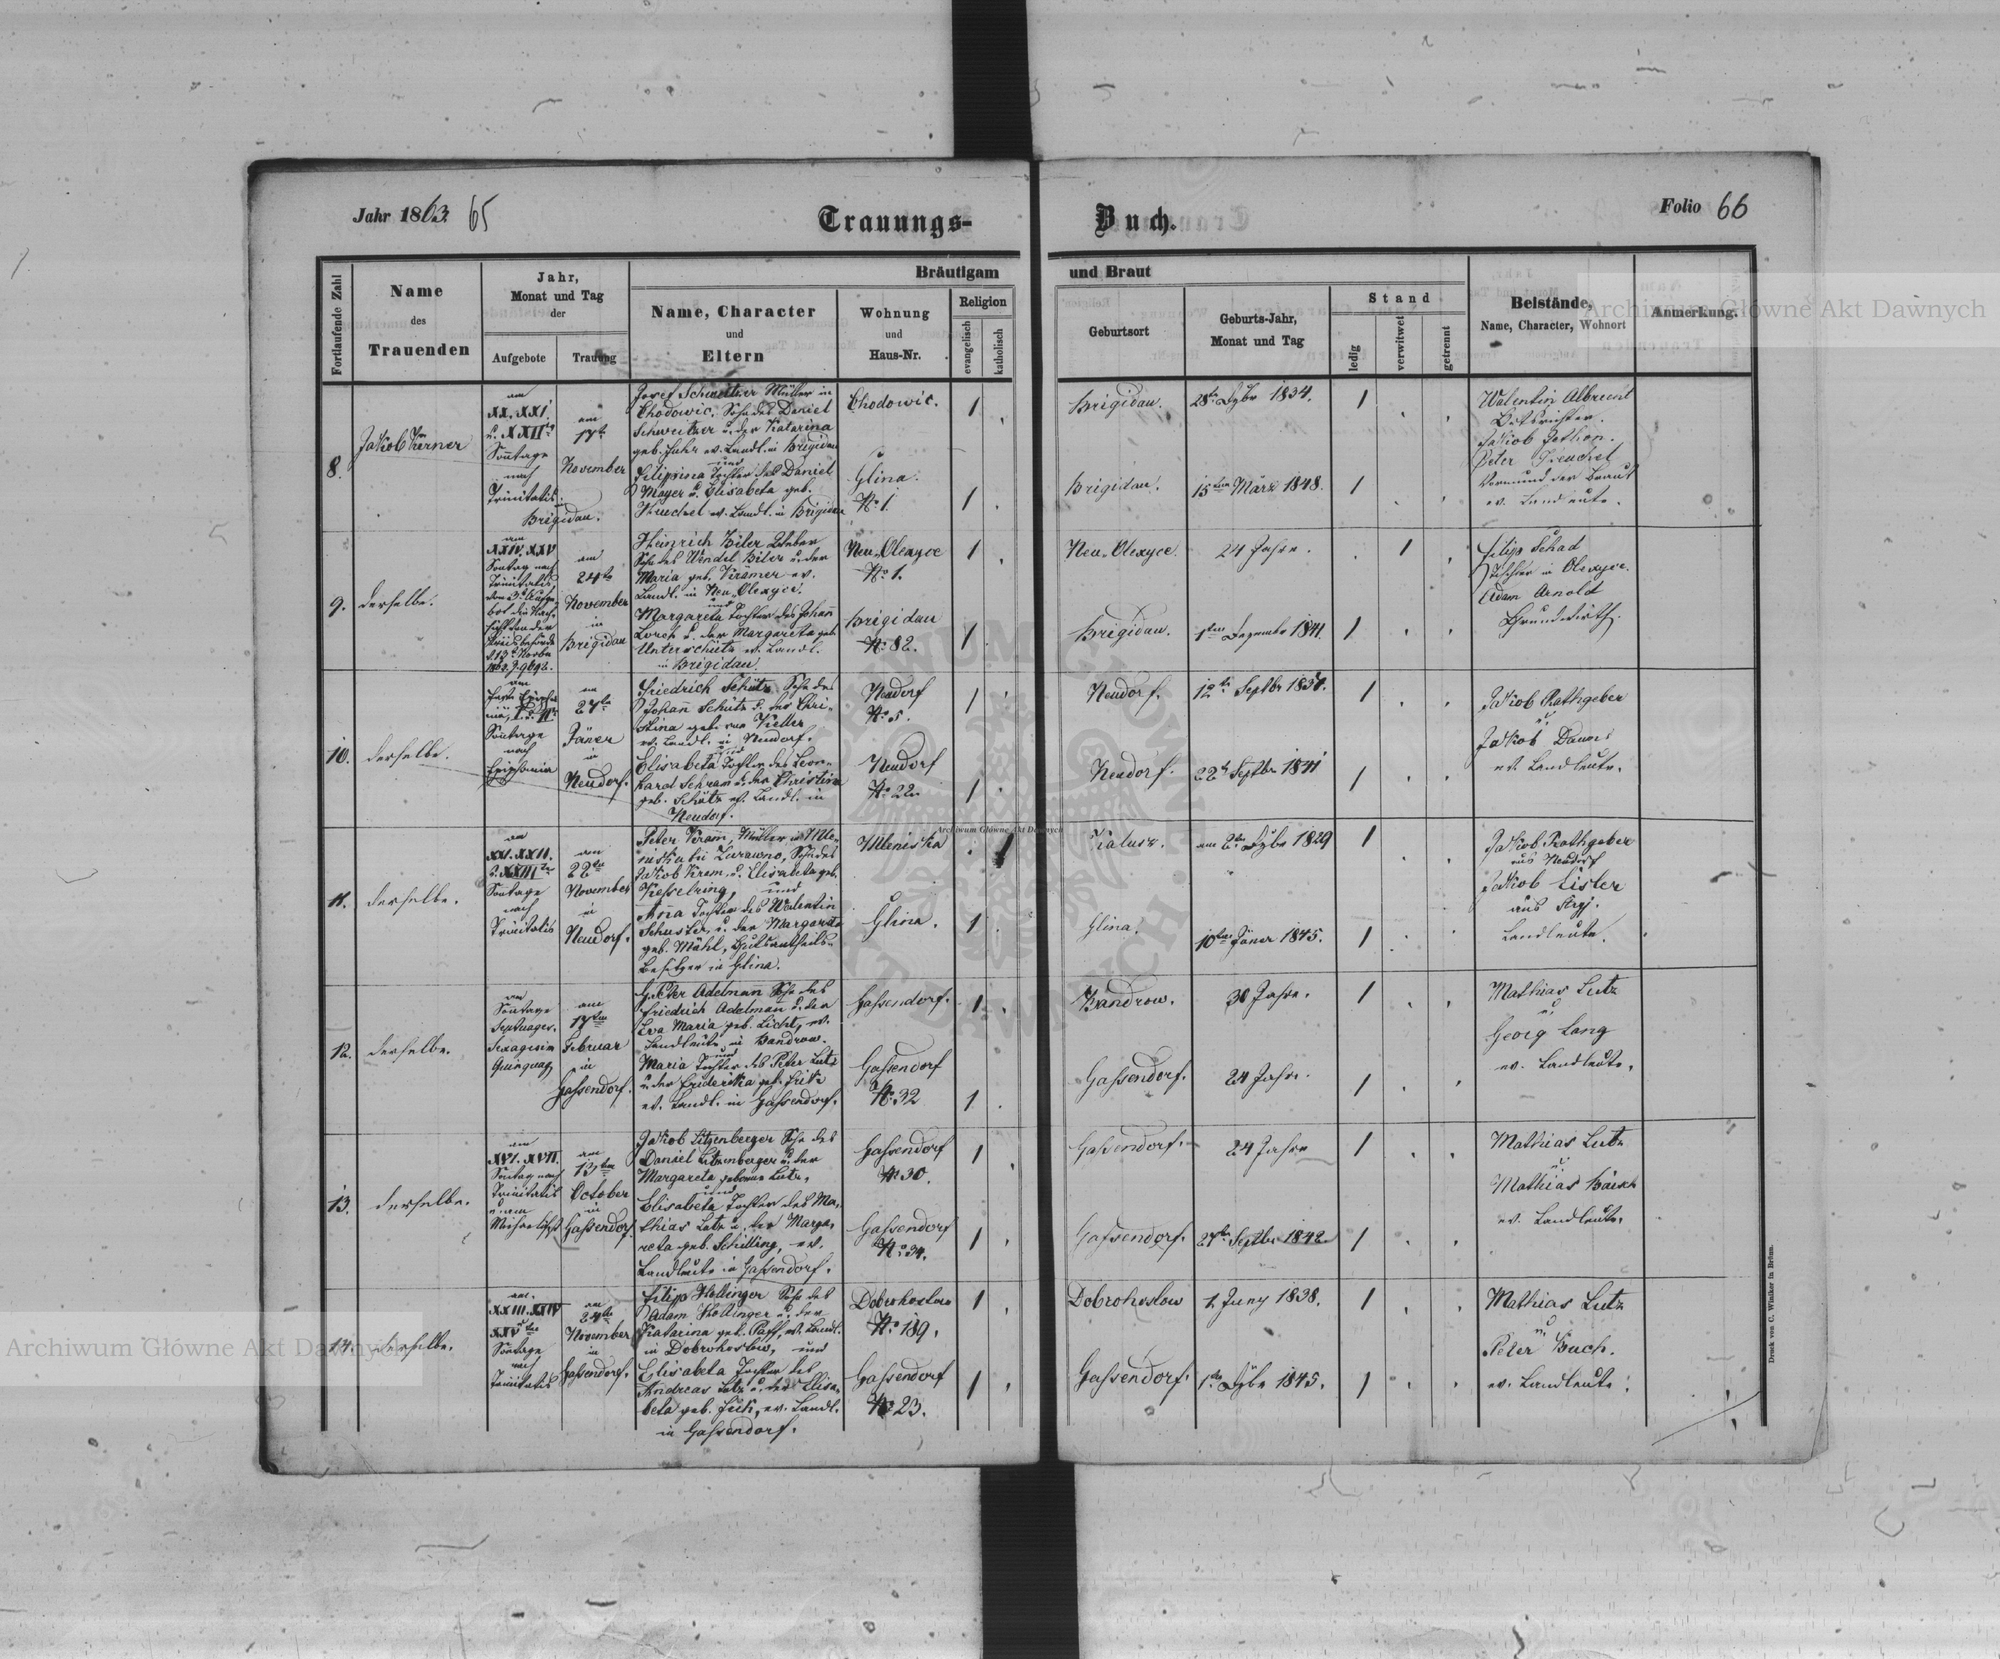 Jahr 1863. 65
Trauungs-
Buch.
Folio 66
Fortlaufende Zahl
Name
des
Trauenden
Jahr,
Monat und Tag
der
Aufgebote
Trauung
Bräutigam
und Braut
Name, Character
und
Eltern
Wohnung
und
Haus-Nr.
Religion
evangelisch
katholisch
Geburtsort
Geburts-Jahr,
Monat und Tag
Stand
ledig
verwitwet
getrennt
Beistände,
Name, Character, Wohnort
Anmerkung.
8.
Jakob Kerner
am
XX. XXI.
u. XXIIten
Sontage
nach
Trinitatis.
in
Brigidau.
am
17te
November
Josef Schweitzer Müller in
Chodowic. Sohn des Daniel
Schweitzer u. der Katarina
geb. Fuhr ev. Landl. in Brigidau
und
Filippina Tochter des Daniel
Mayer u. Elisabeta geb.
ev. Landl. in Brigidau
Chodowic.
Glina.
No 1.
1
1
Brigidau.
28te 1834.
1
Brigidau.
15ten März 1848.
1
Walentin Albrecht
Ortsrichter.
Jakob Jethon.
Peter
Vormund der Braut
ev. Landleute.
9.
derselbe.
am
XXIV. XXV
Sontag nach
Trinitatis
am
24te
November
in
Brigidau
Heinrich Biler Weber
Sohn des Wendel Biler u. der
Maria geb. Kramer ev.
Landl. in Neu-Olexyce.
und
Margareta Tochter des Johann
Lorch u. der Margareta geb.
Unterschütz ev. Landl.
in Brigidau.
Neu-Olexyce
No 1.
Brigidau
No 82.
1
1
Neu-Olexyce.
24 Jahre.
1
Brigidau.
1ten Dezember 1841.
1
Filip Schad
Tischler in Olexyce.
Adam Arnold
Grundwirth.
10.
derselbe.
am
Sontage
nach
Epiphania
am
27te
Jäner
in
Neudorf.
Friedrich Schütz Sohn des
Johann Schütz u. der Chri-
stina geb. Keller
ev. Landl. in Neudorf.
und
Elisabeta Tochter des Leon-
hard Schram u. der Christina
geb. Schütz ev. Landl. in
Neudorf.
Neudorf
No 5.
Neudorf
No 22
1
1
Neudorf.
12te Septbr 1837.
1
Neudorf.
22te Septbr 1841
1
Jakob Rathgeber
u.
Jakob
ev. Landleute.
11.
derselbe.
am
XXI. XXII.
u. XXIIIten
Sontage
nach
Trinitatis
am
22te
November
in
Neudorf.
Peter Kram, Müller in Mle-
niska bei Zurawno, Sohn des
Jakob Kram u. Elisabeta geb.
Kesselring, und
Anna Tochter des Walentin
Schuster u. der Margareta
geb. Mühl, Gutsantheils-
Besitzer in Glina.
Mleniska
Glina.
1
1
Kalusz.
am 2te 1829
1
Glina.
10ten Jäner 1845.
1
Jakob Rathgeber
aus Neudorf
Jakob Lister
aus Stryj.
Landleute.
12.
derselbe.
am
Sontage
Septuages.
Sexagesim
Quinquag.
am
17ten
Februar
in
Gassendorf.
Peter Adelman Sohn des
Friedrich Adelman u. der
Eva Maria geb. Licht, ev.
Landleute in Bandrow.
und
Maria Tochter des Peter Lutz
u. der Friderika geb.
ev. Landl. in Gassendorf.
Gassendorf.
Gassendorf
No 32
1
1
Bandrow.
30 Jahre.
1
Gassendorf.
24 Jahre.
1
Mathias Lutz
u.
Georg Lang
ev. Landleute.
13.
derselbe.
am
XVI. XVII.
Sontag nach
Trinitatis
am
13ten
October
in
Gassendorf.
Jakob Litzenberger Sohn des
Daniel Litzenberger u. der
Margareta geborne Lutz,
und
Elisabeta Tochter des Ma-
thias Lutz u. der Marga-
reta geb. Schilling, ev.
Landleute in Gassendorf.
Gassendorf
No 30.
Gassendorf
No 34.
1
1
Gassendorf.
24 Jahre
1
Gassendorf.
27te Septbr 1842.
1
Mathias Lutz
u.
Mathias Baisch
ev. Landleute.
14.
derselbe.
am
XXIII. XXIV
XXVten
Sontage
nach
Trinitatis
am
24te
November
in
Gassendorf.
Filip Hollinger Sohn des
Adam Hollinger u. der
Katarina geb. Paff, ev. Landl.
in Dobrohostow, und
Elisabeta Tochter des
Andreas Lutz u. der Elisa-
beta geb. ev. Landl.
in Gassendorf.
Dobrohostow
No 189.
Gassendorf
No 23.
1
1
Dobrohostow
1 Juny 1838.
1
Gassendorf.
1te 1845.
1
Mathias Lutz
u.
Peter Buch.
ev. Landleute.
Druck von C. Winiker in Brünn.
Archiwum Główne Akt Dawnych
Archiwum Główne Akt Dawnych
Archiwum Główne Akt Dawnych